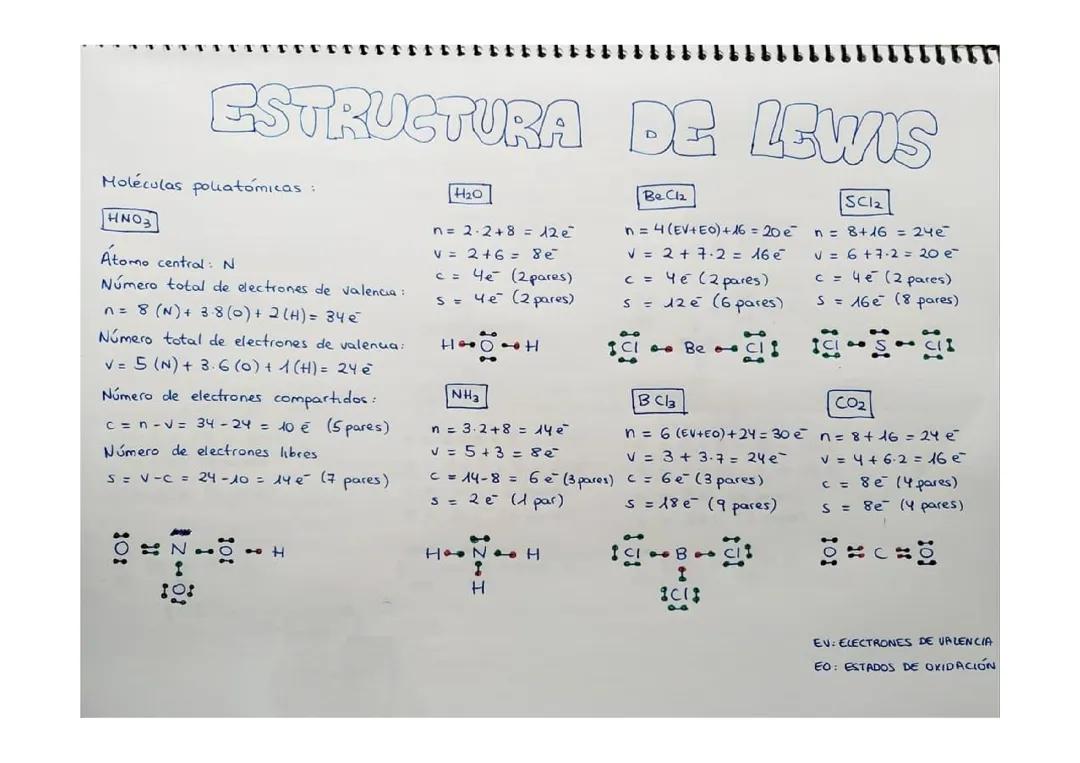 ESTRUCTURA DE LEWIS
Moléculas poliatómicas :
HNO3
Átomo central: N
Número total de electrones de valencia :
n = 8 (N) + 3·8 (O) + 2 (H) = 34 e⁻
Número total de electrones de valencia:
V = 5 (N) + 3·6 (O) + 1 (H) = 24 e⁻
Número de electrones compartidos :
C = n - V = 34 - 24 = 10 e⁻ (5 pares)
Número de electrones libres
S = V - C = 24 - 10 = 14 e⁻ (7 pares)
O N O H
O
H2O
n = 2·2+8 = 12e⁻
V = 2+6 = 8e⁻
C = 4e⁻ (2 pares)
S = 4e⁻ (2 pares)
H O H
NH3
n = 3·2+8 = 14e⁻
V = 5+3 = 8e⁻
C = 14-8 = 6e⁻ (3 pares)
S = 2e⁻ (1 par)
H N H
H
BeCl2
n = 4(EV+EO)+16 = 20e⁻
V = 2 + 7·2 = 16e⁻
C = 4e⁻ (2 pares)
S = 12e⁻ (6 pares)
Cl Be Cl
BCl3
n = 6 (EV+EO)+24 = 30e⁻
V = 3 + 3·7 = 24e⁻
C = 6e⁻ (3 pares)
S = 18e⁻ (9 pares)
Cl B Cl
Cl
SCl2
n = 8+16 = 24e⁻
V = 6+7·2 = 20e⁻
C = 4e⁻ (2 pares)
S = 16e⁻ (8 pares)
Cl S Cl
CO2
n = 8+16 = 24e⁻
V = 4+6·2 = 16e⁻
C = 8e⁻ (4 pares)
S = 8e⁻ (4 pares)
O C O
EV: ELECTRONES DE VALENCIA
EO: ESTADOS DE OXIDACIÓN